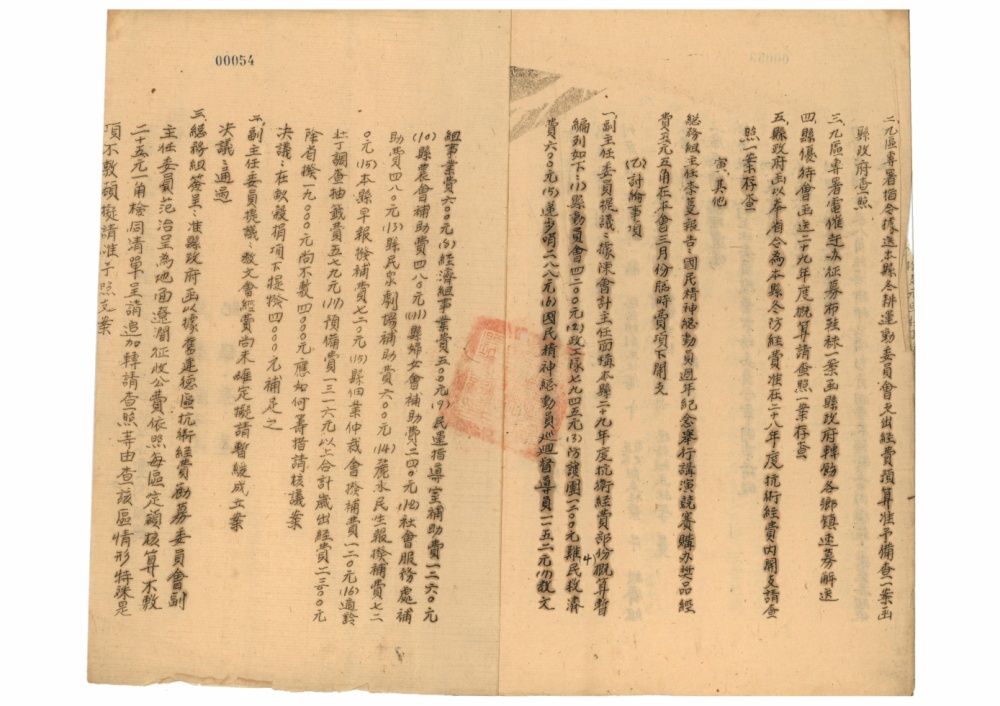 二、九區專署指令據送本縣冬耕運動委員會支出經費預算准予備查一案函
縣政府查照
三、九區專署電催赶办征募布鞋袜一案函縣政府轉飭各鄉鎮速募解送
四、縣優待會函送二十九年度概算請查照一案存查
五、縣政府函以奉省令為本縣冬防經費准在二十八年度抗衛經費內開支請查
照一案存查
寅、其他
總務組主任李蔓報告：國民精神總動員週年紀念舉行講演競賽購办獎品經
費五元五角在本會三月份臨時費項下開支
(乙)討論事項
一、副主任委員提議：據陳會計主任面稱本縣二十九年度抗衛經費部份概算暫
編列如下：(1)縣動員會四二００元(2)政工隊七九四五元(3)防護團一二００元(4)難民救濟
費六００元(5)遞步哨二八八元(6)國民精神總動員巡迴督導員一一五二元(7)教文
00054
組事業費六００元(8)經濟組事業費五００元(9)民運指導室補助費一二六０元
(10)縣農會補助費四八０元(11)縣婦女會補助費二四０元(12)社會服務處補
助費四八０元(13)縣民眾劇場補助費六００元(14)麗水民生報撥補費七二
０元(15)本縣早報撥補費七二０元(15)縣佃業仲裁會撥補費一二０元(16)適齡
壯丁調查抽籤費五七九元(17)預備費一三一六元以上合計歲出經費二三０００元
除省撥一九０００元尚不敷四０００元應如何籌措請核議案
決議：在救殺捐項下提撥四０００元補足之
二、副主任委員提議：教文會經費尚未確定擬請暫緩成立案
決議：通過
三、總務組簽呈：准縣政府函以據舊建德區抗衛經費勸募委員會副
主任委員范治呈為地面遼濶征收公費依照每區定額核算不敷
二十五元一角檢同清單呈請追加轉請查照等由查該區情形特殊是
項不敷碩擬請准予照支案